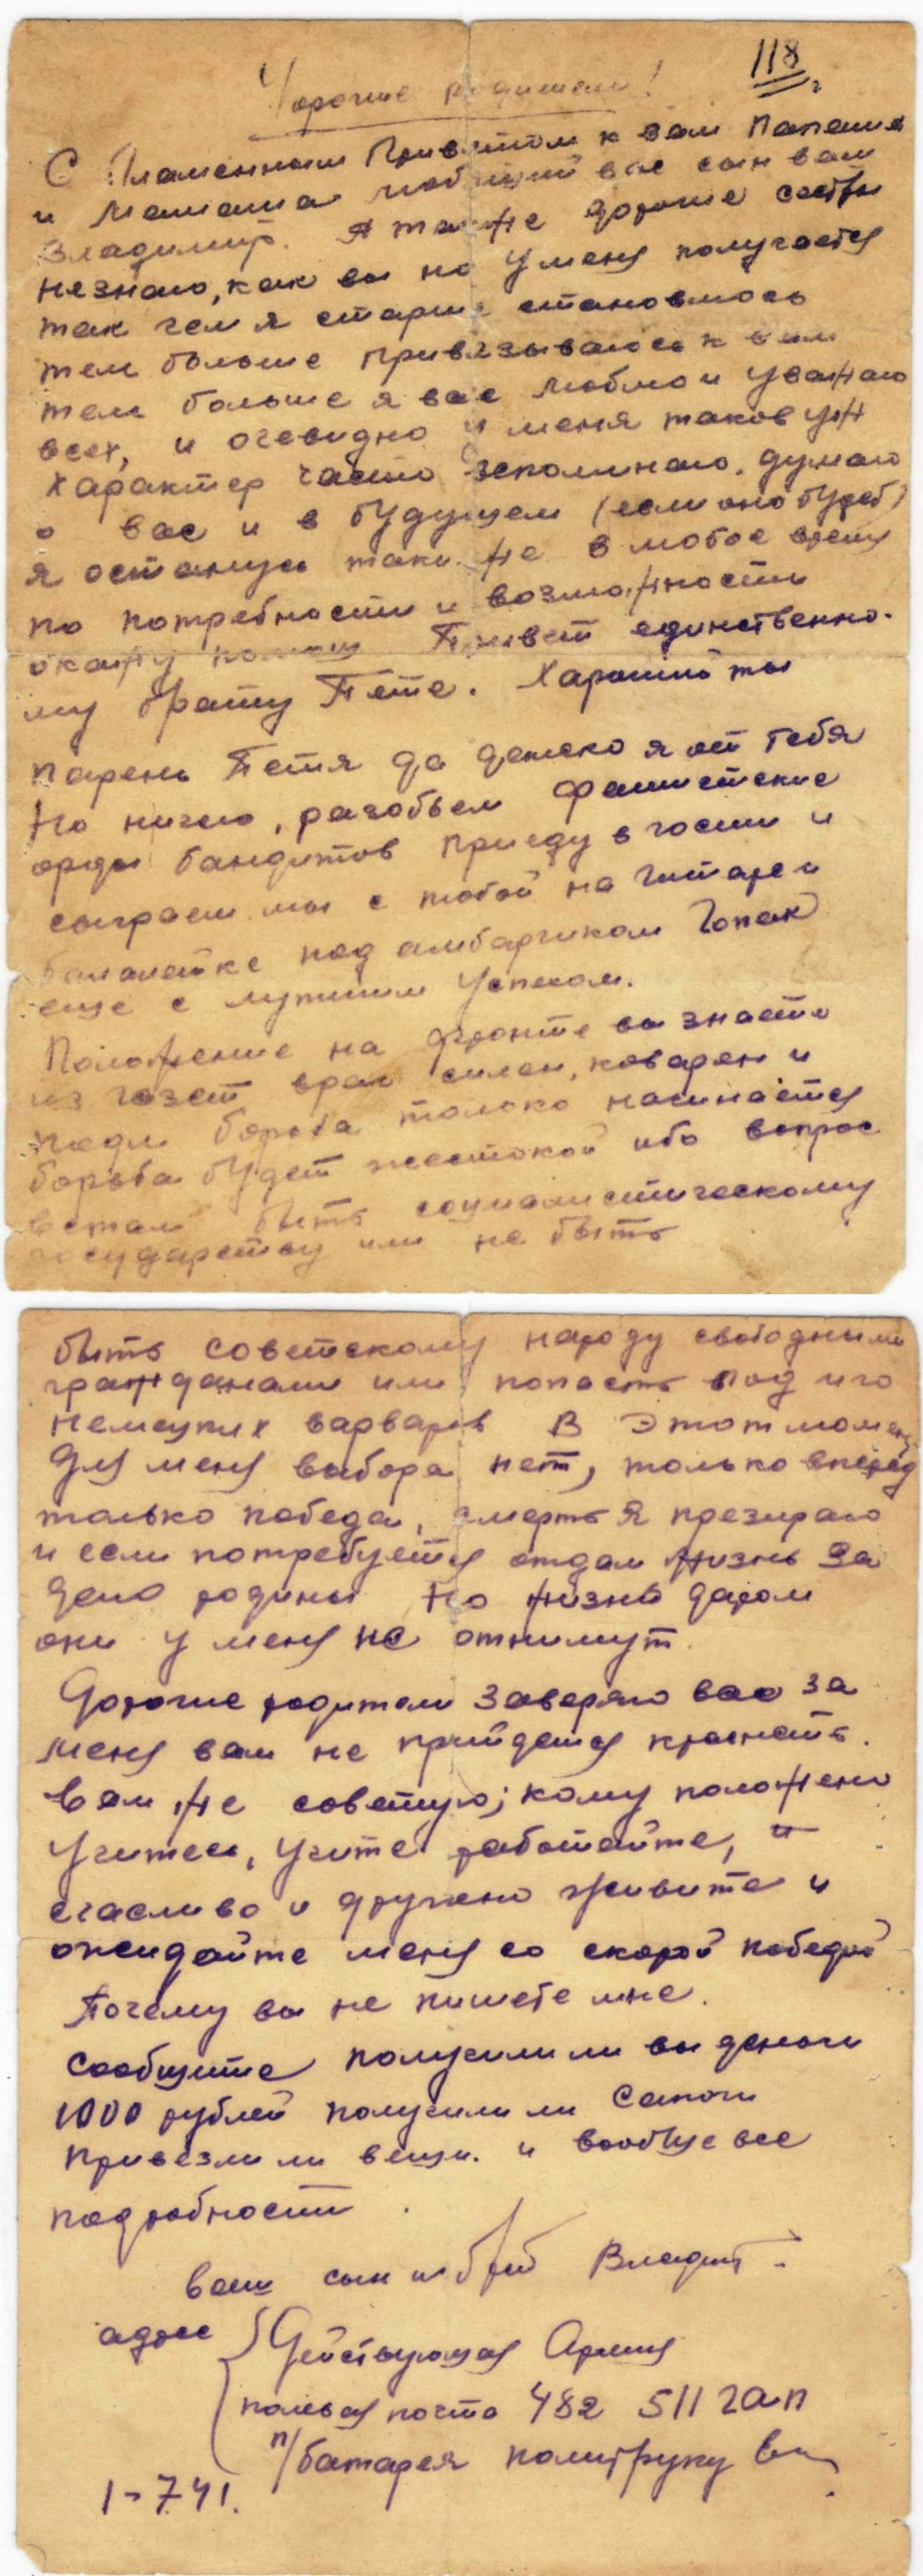 118
Дорогие родители!
С Пламенным Приветом к Вам Папаша
и Мамаша любящий вас сын ваш
Владимир. А также дорогие сестры
незнаю, как вы но у меня получается
так чем я старше становлюсь
тем больше привязываюсь к вам
тем больше я вас люблю и уважаю
всех, и очевидно у меня таков уж
характер часто вспоминаю. думаю
о вас и в будущем (если оно будет)
я останусь таким же в любое время
по потребности и возможности
окажу помощь Привет единственно-
му брату Пете. Хароший ты
парень Петя да далеко я от тебя
Но ничего, разобьем фашистские
орды бандитов приеду в гости и
сыграем мы с тобой на гитаре и
балалайке под амбарчиком Гопак
еще с лутшим успехом.
Положение на фронте вы знаете
из газет враг силен, коварен и
подл борьба только начинается
борьба будет жестокой ибо вопрос
встал быть социалистическому
государству или не быть
быть советскому народу свободными
гражданами или попасть под иго
немецких варваров В этот момент
для меня выбора нет, только вперед
только победа, смерть я презираю
и если потребуется отдам жизнь за
дело родины Но жизнь даром
они у меня не отнимут.
Дорогие родители заверяю вас за
меня вам не прийдется краснеть.
Вам же советую; кому положено
учитесь, учите работайте, и
счасливо и дружно живите и
ожидайте меня со скорой победой
Почему вы не пишете мне.
Сообщите получили ли вы деньги
1000 рублей получили ли сапоги
привезли ли вещи. и вообще все
подробности.
ваш сын и брат Владимир
адрес Действующая Армия
полевая почта 482 511 гап
п/батарея политруку
1-7 41.